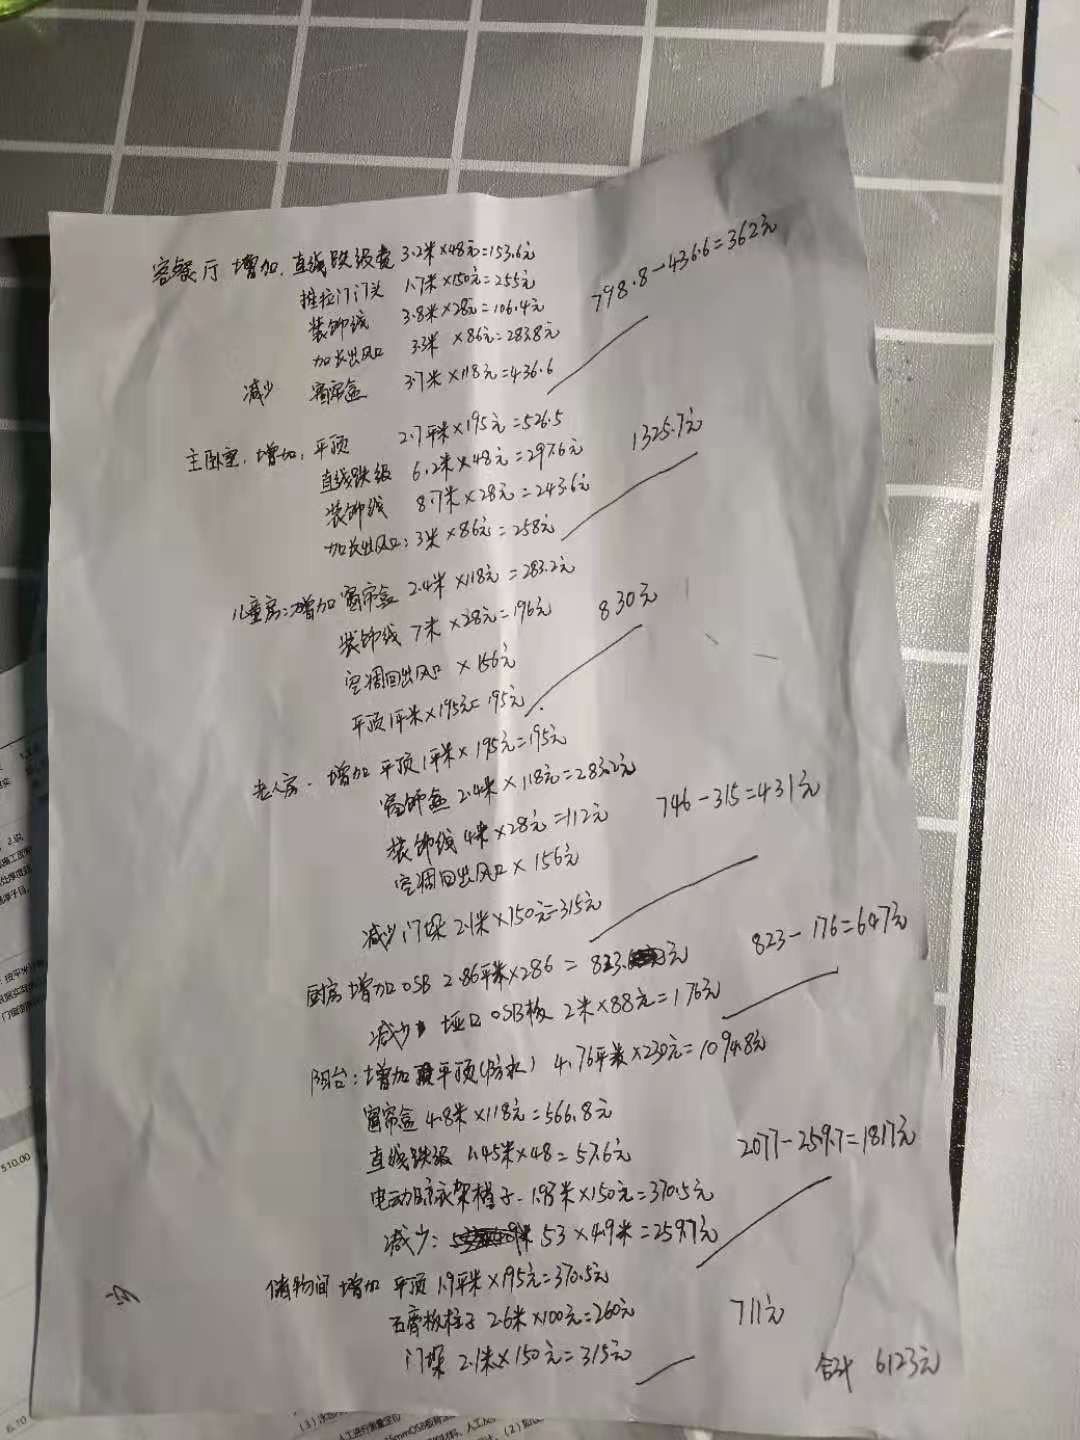 客餐厅 增加. 直线跌级费 3.2米×48元=153.6元
推拉门门头 1.7米×150元=255元
装饰线 3.8米×28元=106.4元
加长出风口 3.3米×86元=283.8元
798.8-436.6=362元
减少 窗帘盒 3.7米×118元=436.6
主卧室. 增加: 平顶 2.7平米×195元=526.5
直线跌级 6.2米×48元=297.6元
1325.7元
装饰线 8.7米×28元=243.6元
加长出风口: 3米×86元=258元
儿童房: 增加 窗帘盒 2.4米×118元=283.2元
装饰线 7米×28元=196元
830元
空调回出风口×156元
平顶1平米×195元=195元
老人房. 增加 平顶1平米×195元=195元
窗帘盒 2.4米×118元=283.2元
装饰线 4米×28元=112元
746-315=431元
空调回出风口×156元
减少门垛 2.1米×150元=315元
厨房 增加OSB 2.86平米×286=823.元
823-176=647元
减少 垭口OSB板 2米×88元=176元
阳台: 增加 平顶(防水) 4.76平米×230元=1094.8元
窗帘盒 4.8米×118元=566.8元
直线跌级 1.45米×48=57.6元
2077-259.7=1817元
电动晾衣架槽子. 1.93米×150元=370.5元
减少: 53×4.9米=259.7元
储物间 增加 平顶 1.9平米×195元=370.5元
石膏板柱子 2.6米×100元=260元
711元
门垛 2.1米×150元=315元
合计 6123元
510.00